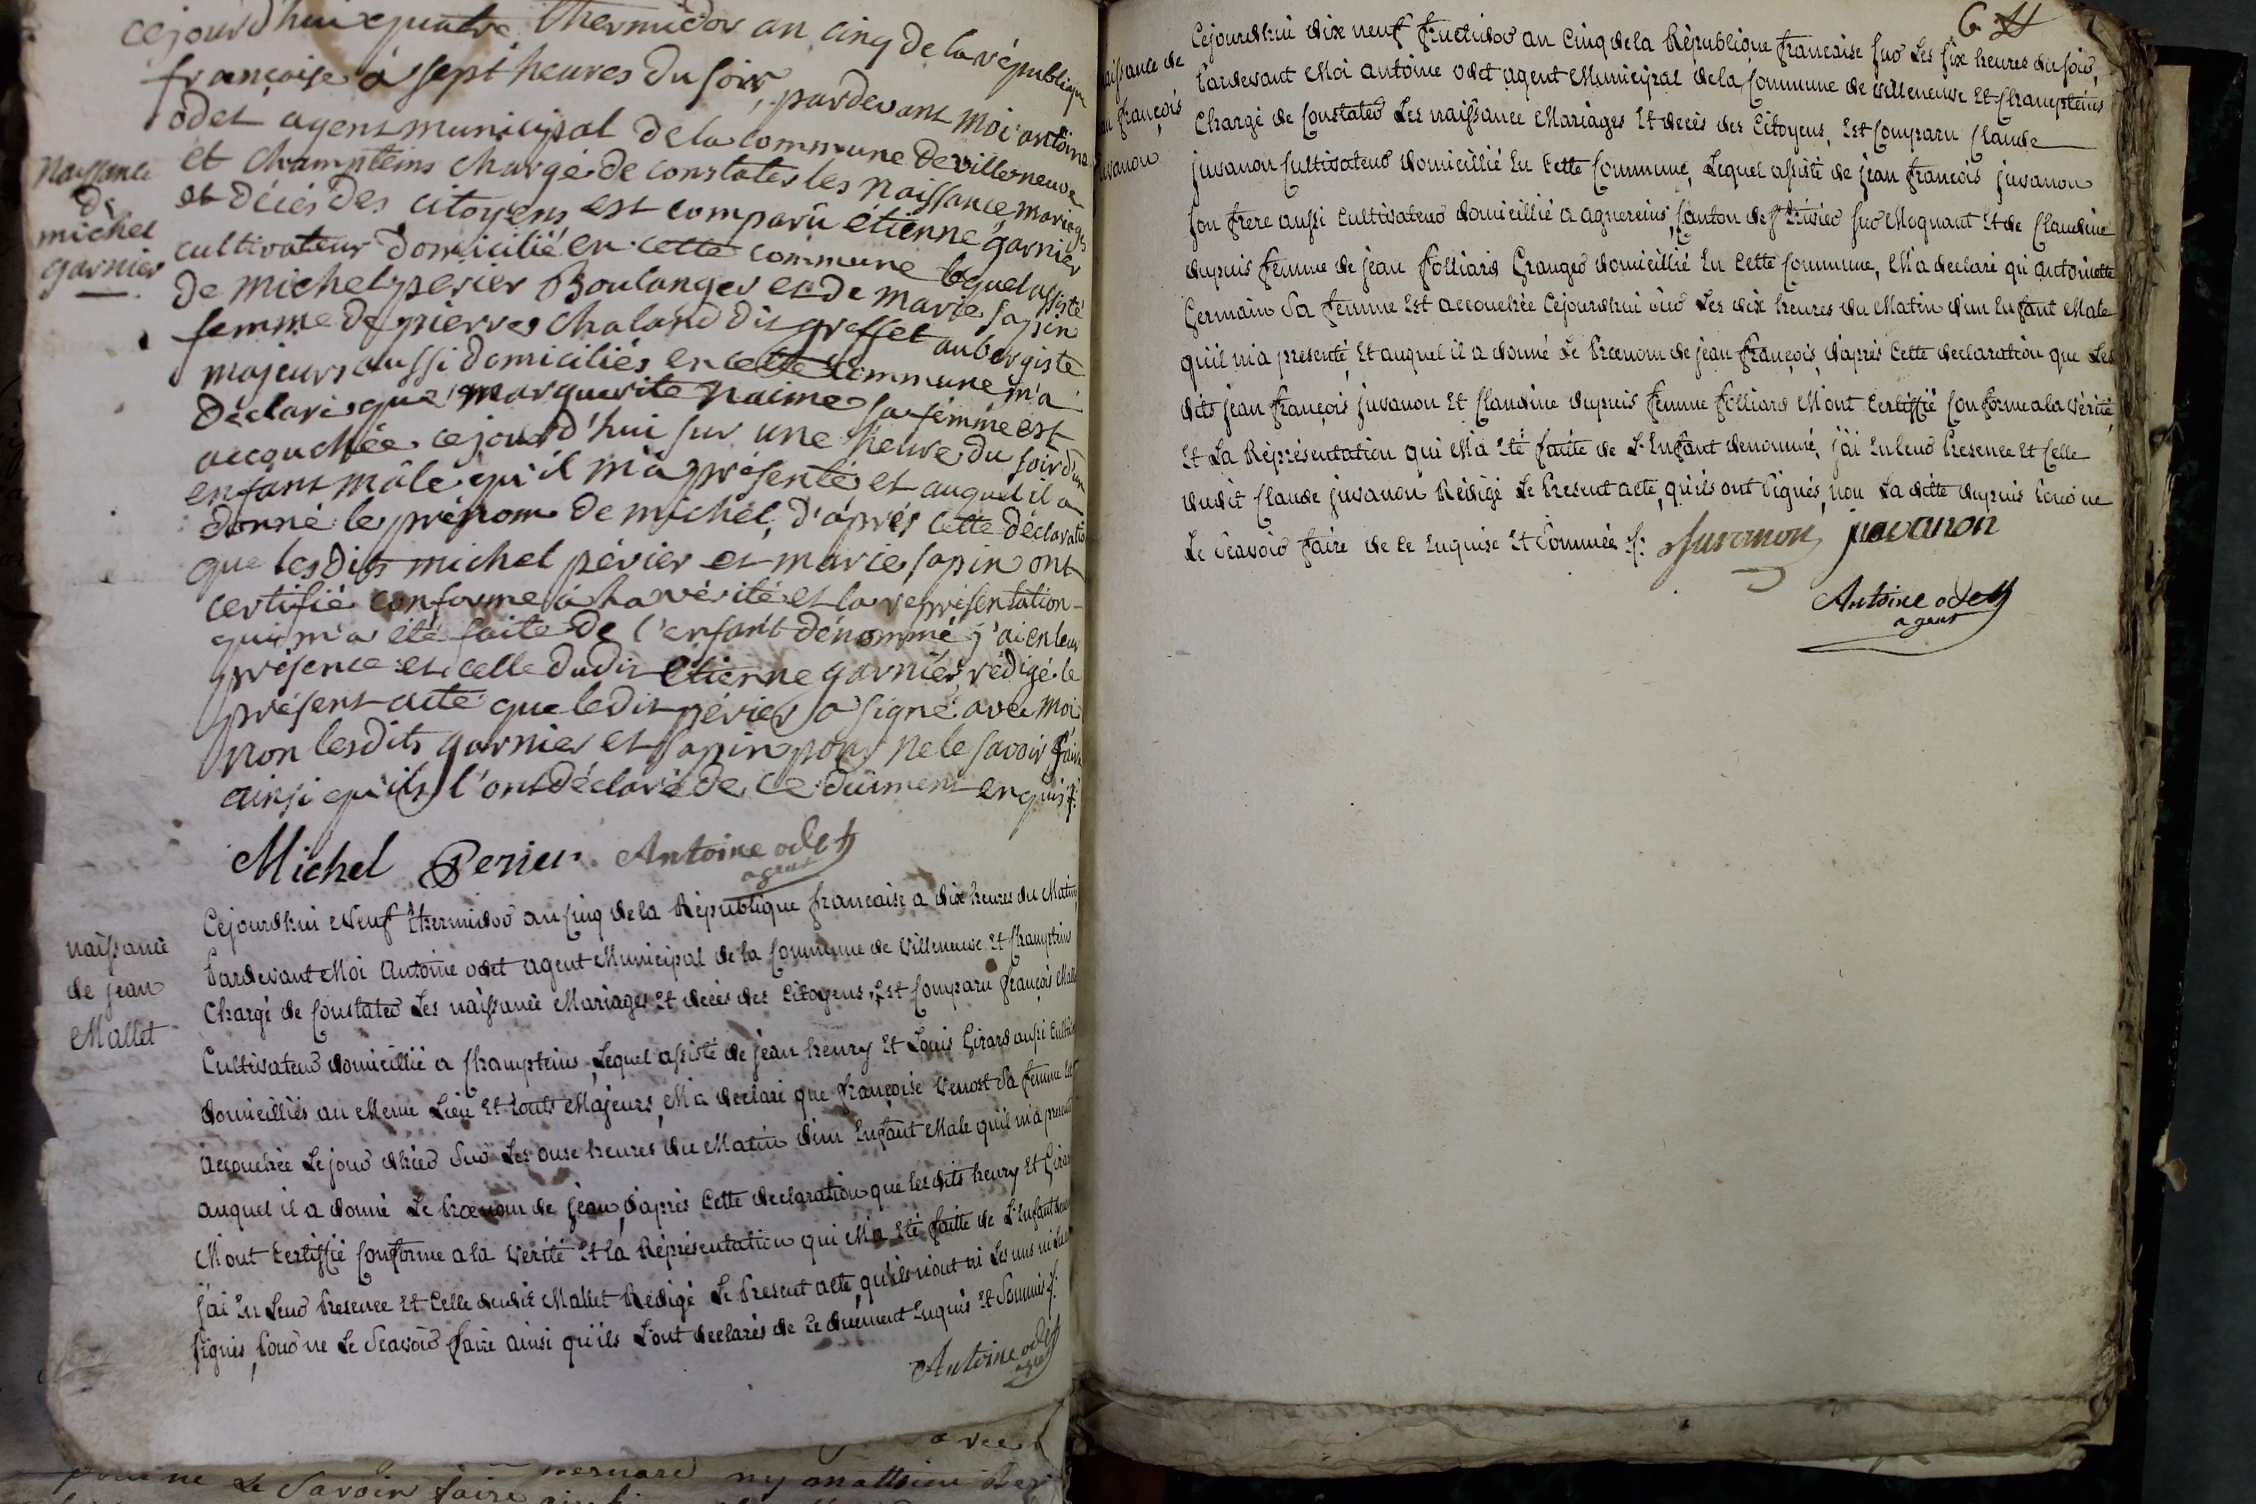 cejourd'hui quatre thermidor an cinq de la république
françoise à sept heures du soir, pardevant moi antoine
odet agent municipal de la commune de villeneuve
et champteins chargé de constater les naissance, mariages
et décés des citoyens est comparû étienne garnier
cultivateur domicilié en cette commune lequel assisté
de michel perier Boulanger et de marie sapin
femme de pierre chaland dit greffet aubergiste
majeurs aussi domiciliés en cette commune m'a
déclaré que marguerite naime sa fémme est
accouchée cejourd'hui sur une heure du soir d'un
enfant mâle qu'il m'a présenté et auquel il a
donné le prénom de michel, d'àprés cette déclaration
que les dits michel périer et marie sapin ont
certifié conforme à la vérité et la représentation
qui m'a été faite de l'enfant dénommé j'ai en leur
présence et celle dudit étienne garnier, rédigé le
présent acte que ledit périer a signé avec moi
non lesdits garnier et sapin pour ne le savoir faire
ainsi qu'ils l'ont déclaré de ce dûment enquis ./.
Michel Perier Antoine odet
agent
Naissance
de
michel
garnier
Cejourdhui Neuf thermidor an Cinq de la République francaise a dix heures du Matin
Pardevant Moi Antoine odet agent Municipal de la Commune de Villeneuve Et Champteins
Chargé de Constater Les naissance Mariages Et decès des Citoyens, Est Comparu françois Mallet
Cultivateur domicillié a Champteins, Lequel assisté de jean henry Et Louis Girard aussi Cultiv
domicilliés au Meme Lieu Et touts Majeurs, M'a declaré que françoise Venost Sa femme Est
accouchée Le jour d'hier Sur Les onse heures du Matin d'un Enfant Male qu'il m'a presenté
auquel il a donné Le Prœnom de jean, d'après Cette declaration que les dits henry Et Girard
M'ont Certiffié Conforme a la Verité Et la Réprésentation qui M'a Eté faitte de L'Enfant
j'ai En Leur Presence Et Celle dudit Mallet Rédigé Le Present acte, qu'ils n'ont ni Les uns ni
signés, Pour ne Le Scavoir faire ainsi qu'ils L'ont declarés de Ce duement Enquis Et Sommés ./.
Antoine odet
agent
naissance
de jean
Mallet
6
Cejourdhui dix neuf fructidor an Cinq de la République francaise sur Les six heures du soir,
Pardevant Moi antoine odet agent Municipal de la Commune de Villeneuve Et Champteins
Chargé de Constater Les naissance Mariages Et decès des Citoyens, Est Comparu Claude
juvanon Cultivateur domicillié En Cette Commune, Lequel assisté de jean françois juvanon
son frere aussi Cultivateur domicillié a agnereins, Canton de st trivier sur Mognant Et de Claudine
dupuis femme de jean folliard Granger domicillié En Cette Commune, M'a declaré qu'antoinette
Germain Sa femme Est accouchée Cejourdhui vers Les dix heures du Matin d'un Enfant Male
qu'il m'a presenté, Et auquel il a donné Le Prœnom de jean françois, d'après Cette declaration que Les
dits jean françois juvanon Et Claudine dupuis femme folliard M'ont Certiffié Conforme a la Vérité
Et La Réprésentation qui M'a Eté faite de L'Enfant denommé, j'ai En Leur Presence Et Celle
dudit Claude juvanon Rédigé Le Present acte, qu'ils ont signés, non La ditte dupuis Pour ne
Le Scavoir faire de Ce Enquise Et Sommée ./. juvanon juvanon
Antoine odet
agent
naissance de
jean françois
juvanon